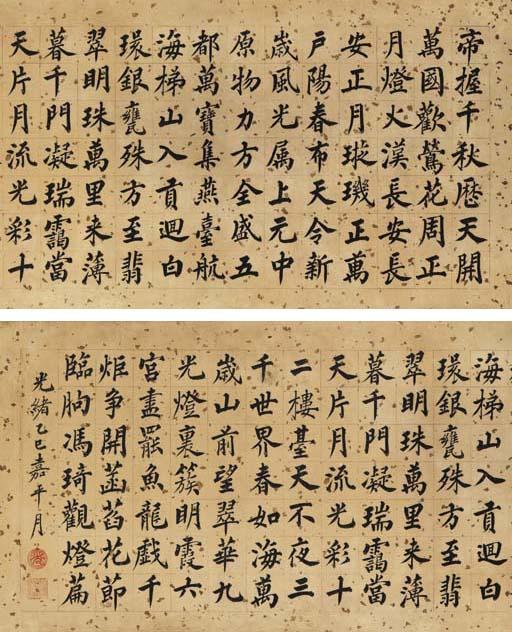 帝握千秋歴天開
萬國歡鶯花周正
月燈火漢長安長
安正月璇璣正萬
戶陽春布天令新
歲風光属上元中
原物力方全盛五
都萬寶集燕臺航
海梯山入貢迴白
環銀甕殊方至翡
翠明珠萬里来薄
暮千門凝瑞靄當
天片月流光彩十
海梯山入貢迴白
環銀甕殊方至翡
翠明珠萬里来薄
暮千門凝瑞靄當
天片月流光彩十
二樓臺天不夜三
千世界春如海萬
歲山前望翠華九
光燈裏簇明霞六
宮盡罷魚龍戲千
炬爭開菡萏花節
臨朐馮琦觀燈篇
光緒乙巳嘉平月